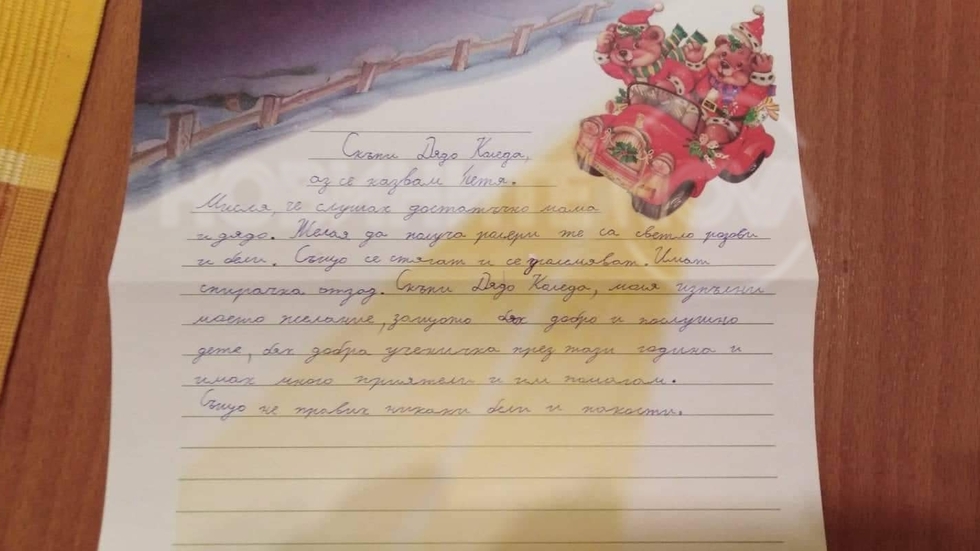 Скъпи Дядо Коледа,
аз се казвам Петя.
Мисля, че слушах достатъчно мама
и дядо. Желая да получа ролери те са светло розови
и бели. Също се стягат и се уголемяват. Имат
спирачка отзад. Скъпи Дядо Коледа, моля изпълни
моето желание, защото бях добро и послушно
дете, бях добра ученичка през тази година и
имах много приятели и им помагам.
Също не правих никакви бели и пакости.